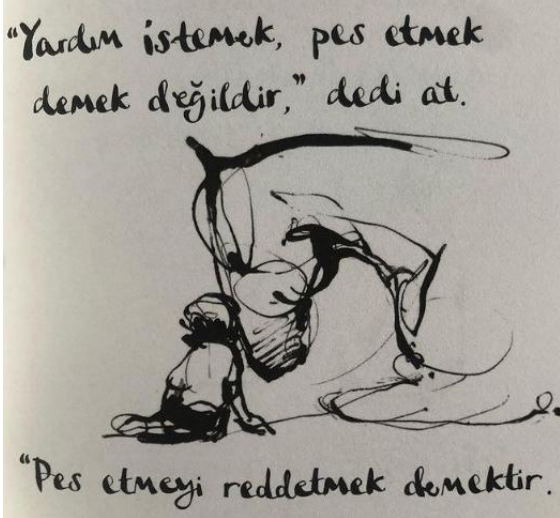 “Yardım istemek, pes etmek
demek değildir,” dedi at.
“Pes etmeyi reddetmek demektir.